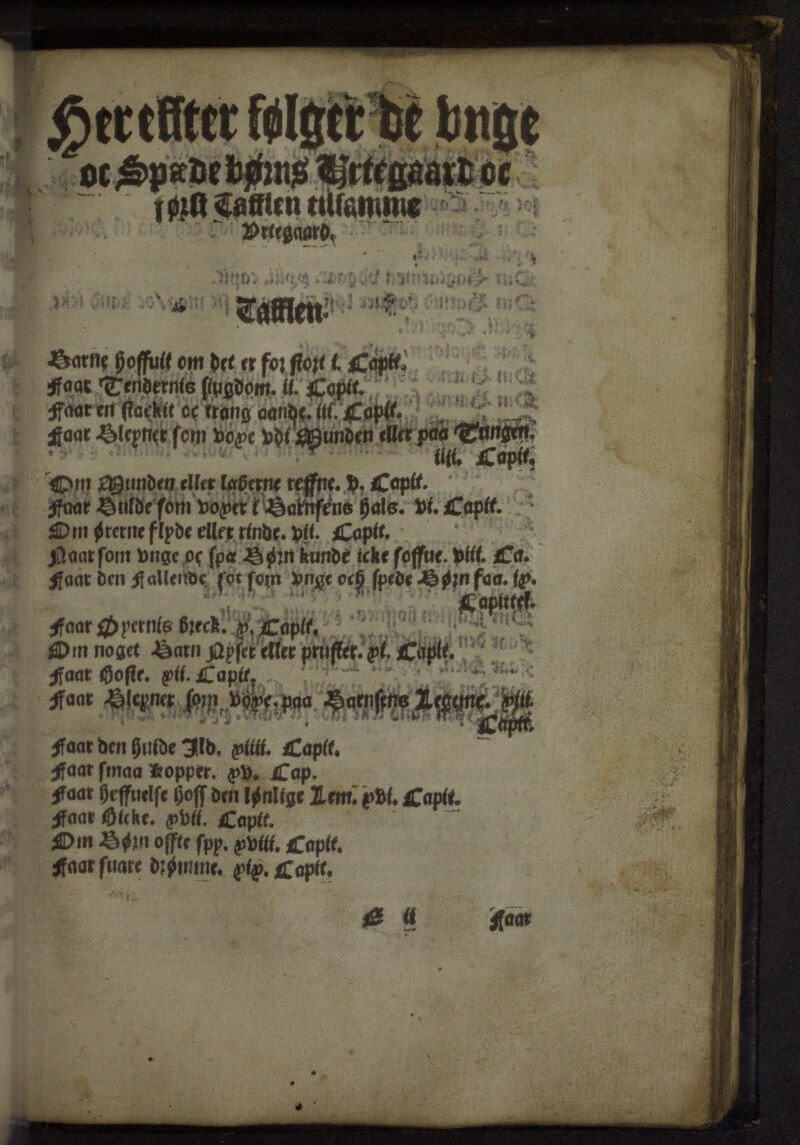 Her effter følger de vnge
oc Spæde børns Vrtegaard oc
først Tafflen tilsamme
Vrtegaard.
Tafflen.
Barns hoffuit om det er for stort i. Capit.
Faar Tendernis siugdom. ii. Capit.
Faar en stackit oc trang aande. iii. Capit.
Faar Blegner som voxe vdi Munden eller paa Tungen.
iiii. Capit.
Om Munden eller laberne reffne. v. Capit.
Faar Bulde som voxer i Barnsens hals. vi. Capit.
Om ørerne flyde eller rinde. vii. Capit.
Naar som vnge oc spæ Børn kunde icke soffue. viii. Ca.
Faar den Fallende sot som vnge och spede Børn faa. ix.
Capittel.
Faar Øyernis breck. x. Capit.
Om noget Barn Nyser eller pruster. xi. Capit.
Faar Hoste. xii. Capit.
Faar Blegner som voxe paa Barnsens Legeme. xiii
Capit.
Faar den huide Ild. xiiii. Capit.
Faar smaa Kopper. xv. Cap.
Faar heffuelse hoss den lønlige Lem. xvi. Capit.
Faar Hicke. xvii. Capit.
Om Børn offte spy. xviii. Capit.
Faar suare drømme. xix. Capit.
N ii Faar